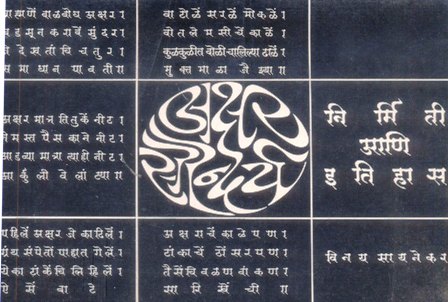 ब्राह्मणें बाळबोध अक्षर।
घडसून करावें सुंदर।
जें देखतांचि चतुर।
समाधान पावती॥
वाटोळें सरळें मोकळें।
वोतलें मसीचें काळें।
कुळकुळीत वोळी चालिल्या ढाळें।
मुक्तमाळा जैशा॥
अक्षरमात्र तितुकें नीट।
नेमस्त पैस काने नीट।
आडव्या मात्रा त्याही नीट।
आर्कुली वेलांट्या॥
अक्षर
सौन्दर्य
निर्मिती
आणि
इतिहास
पहिलें अक्षर जें काढिलें।
ग्रंथ संपेतों पाहात गेलें।
येका टांकेंचि लिहिलें।
ऐसें वाटे
अक्षराचें काळेपण।
टांकाचें ठोसरपण।
तैसेंचि वळण वांकण।
सारिखेंची॥
विनय सायनेकर